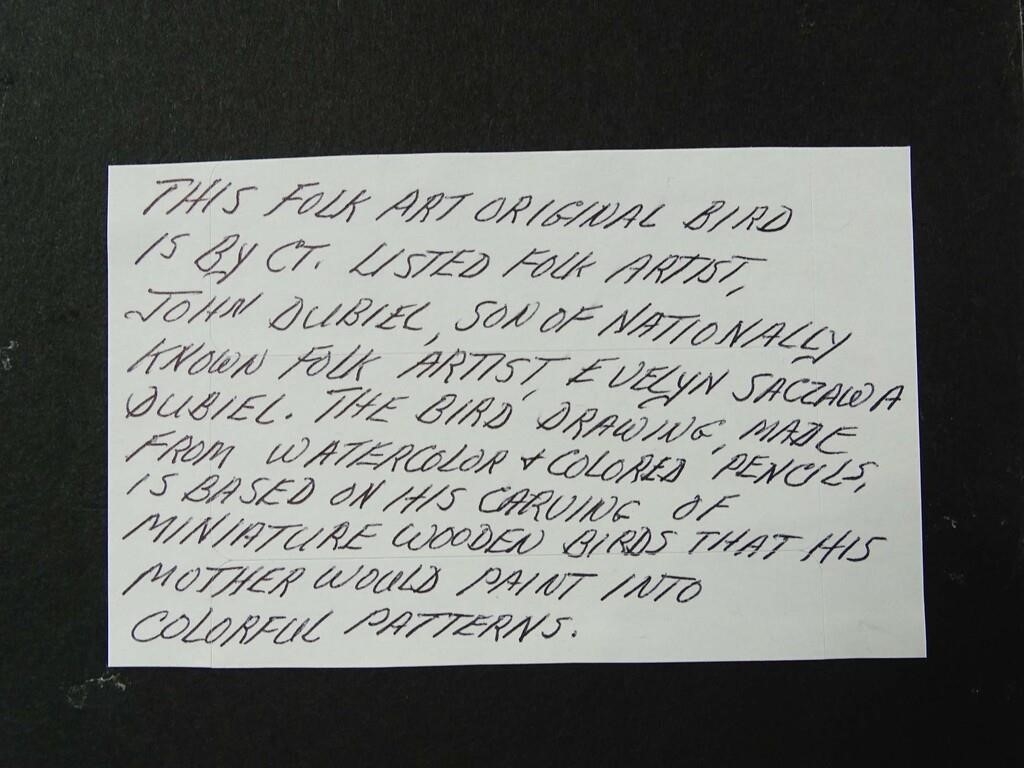 THIS FOLK ART ORIGINAL BIRD
IS BY CT. LISTED FOLK ARTIST,
JOHN DUBIEL, SON OF NATIONALLY
KNOWN FOLK ARTIST, EVELYN SACZAWA
DUBIEL. THE BIRD DRAWING, MADE
FROM WATERCOLOR + COLORED PENCILS,
IS BASED ON HIS CARVING OF
MINIATURE WOODEN BIRDS THAT HIS
MOTHER WOULD PAINT INTO
COLORFUL PATTERNS.